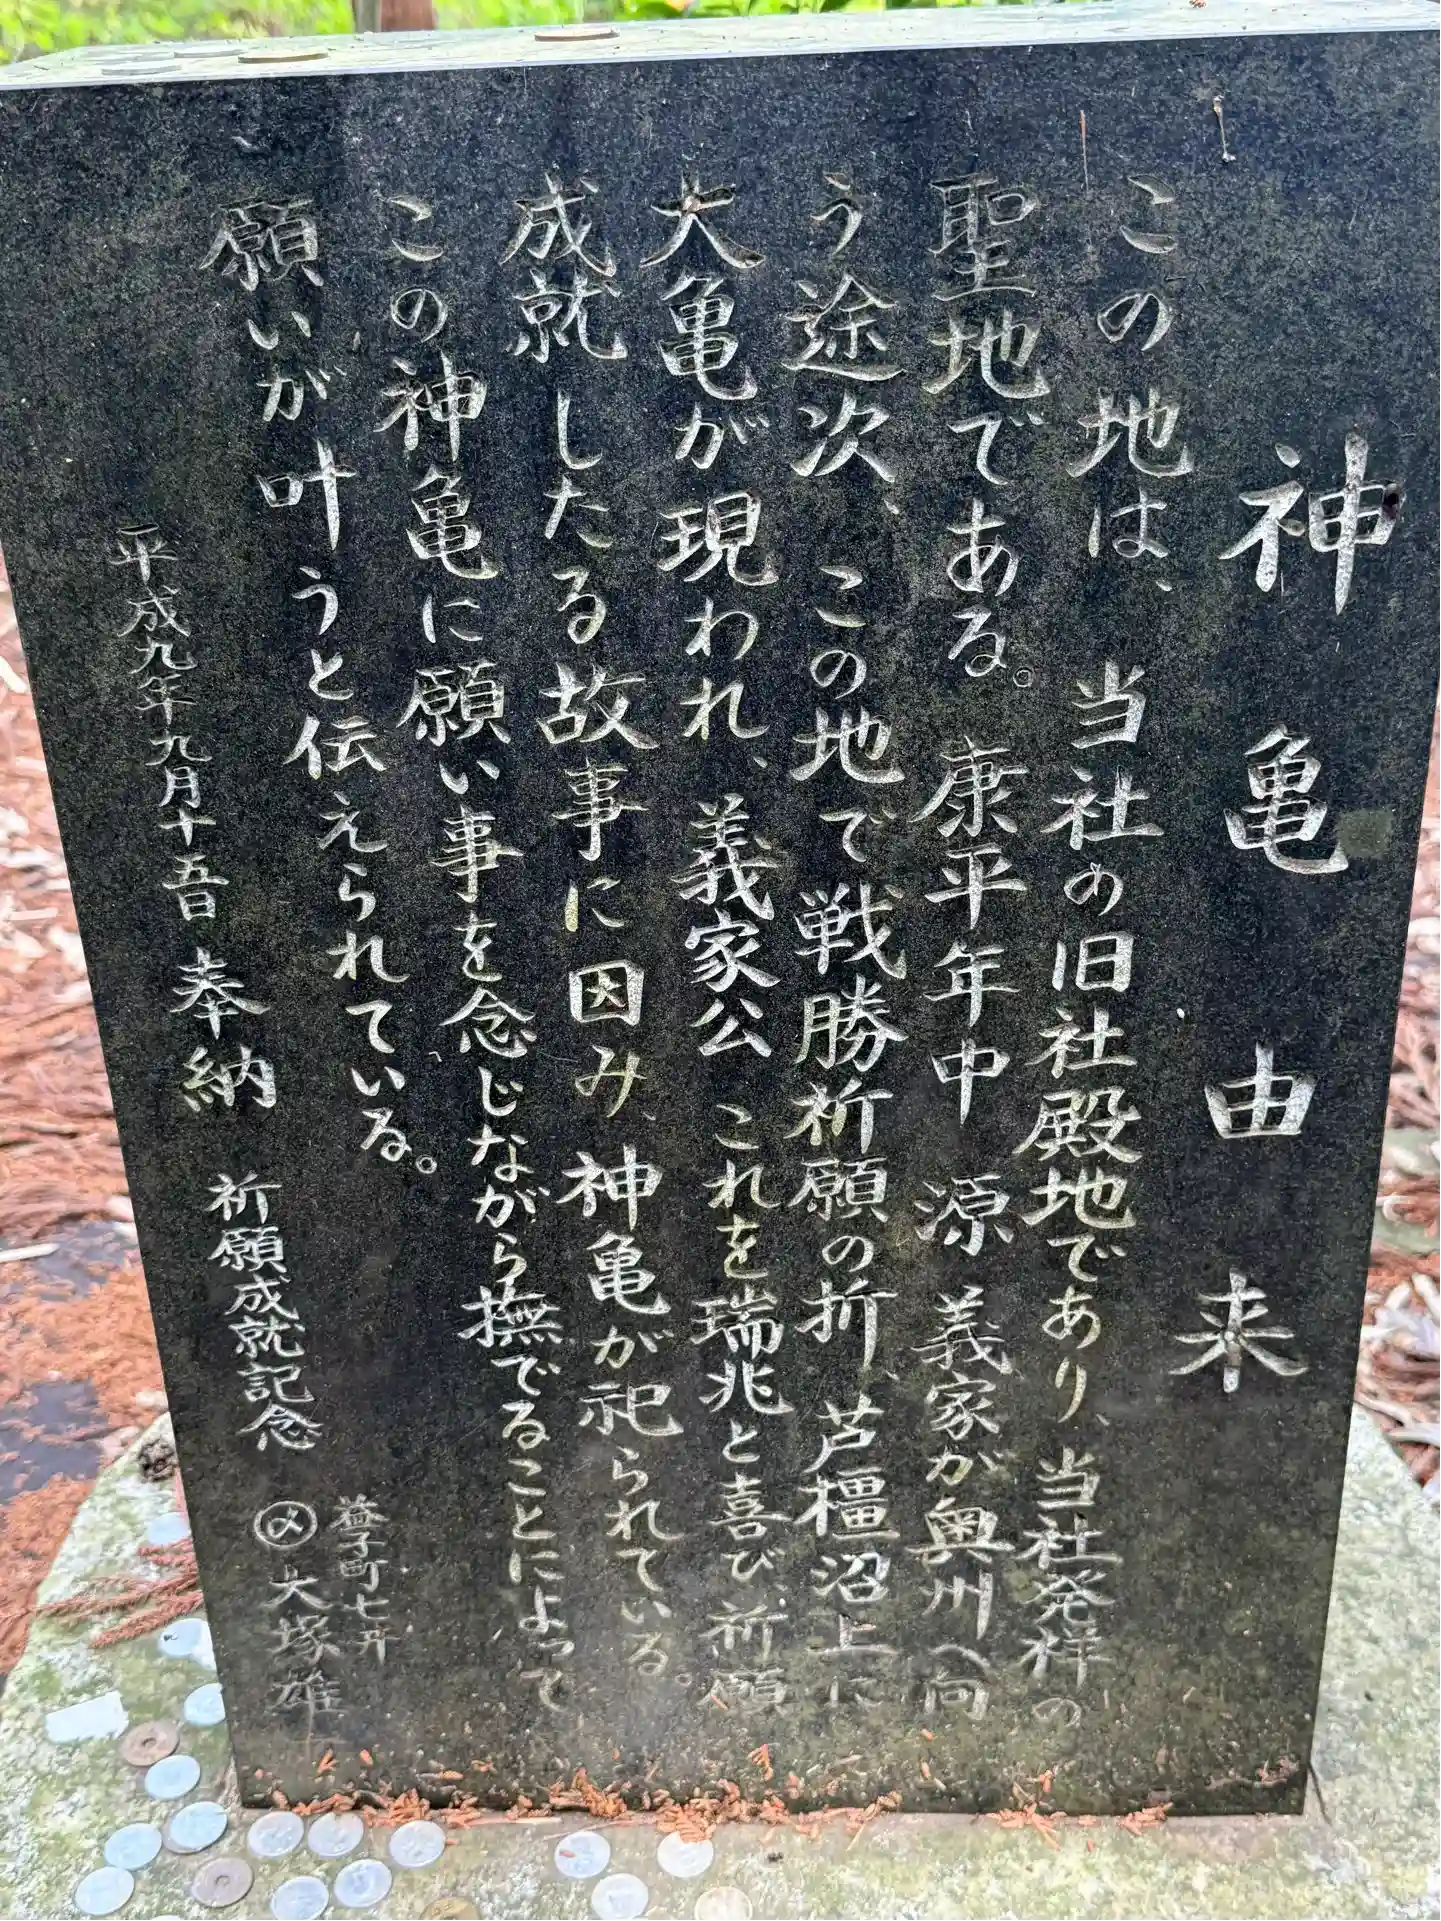 神亀由来
この地は、当社の旧社殿地であり、当社発祥の
聖地である。康平年中 源 義家が奥州へ向
う途次、この地で戦勝祈願の折、芦橿沼上に
大亀が現われ、義家公 これを瑞兆と喜び、祈願
成就したる故事に因み、神亀が祀られている。
この神亀に願い事を念じながら撫でることによって
願いが叶うと伝えられている。
平成九年九月十五日 奉納 祈願成就記念
益子町七井
大塚雄